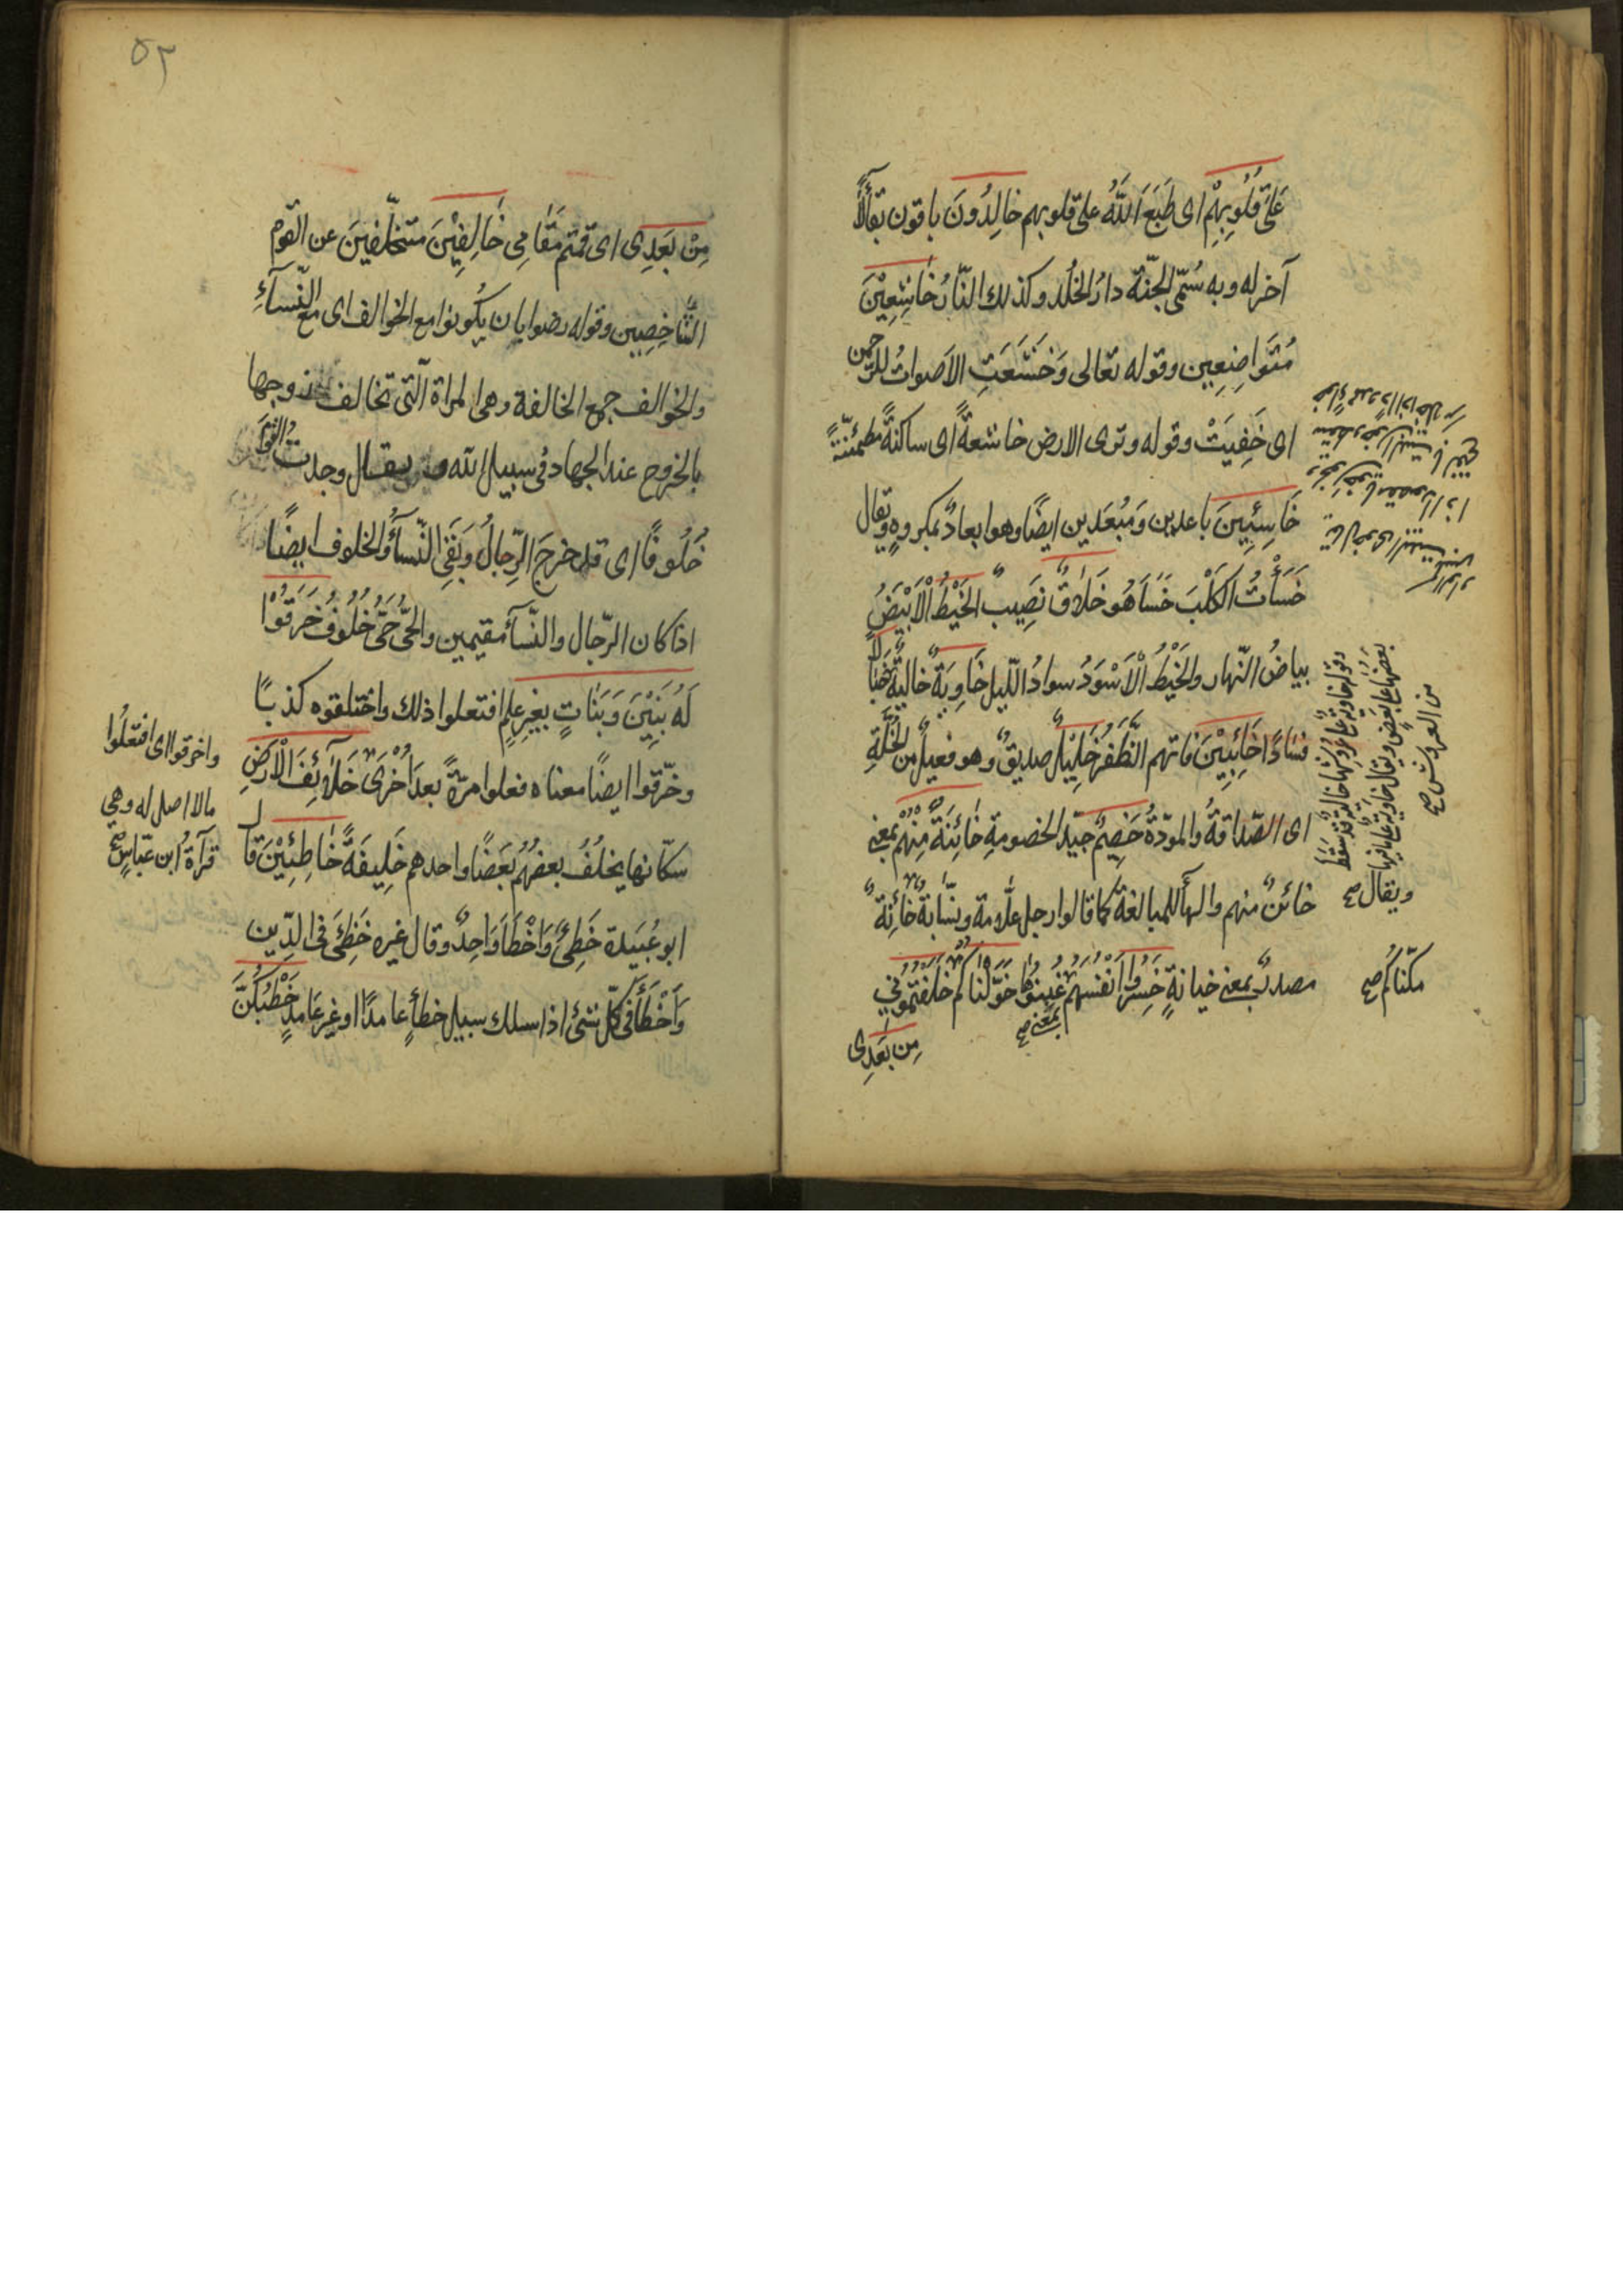 عَلَىٰ قُلُوبِهِمْ اى طَبَعَ اللّٰهُ على قلوبهم خالِدُونَ باقون بقآءً لا
آخر له وبه سُمّى الجنّة دارُ الخُلد وكذلك النّارُ خَاشِعِيْنَ
مُتَواضِعِين وقوله تعالى وَخَشَعَتِ الاَصواتُ للرّحمن
اى خَفِيَتْ وقوله وترى الارض خاشعةً اى ساكنةً مطمئنّةً
خَاسِئِينَ باعدين وَمُبْعَدين ايضًا وهو ابعادٌ بمكروهٍ ويقال
خَسَأْتُ الكَلْبَ خَسَأَ هُو خَلَاقٌ نَصِيبٌ الخَيْطُ الْاَبْيَضُ
بياضُ النّهار والخَيْطُ الْاَسْوَدُ سوادُ اللّيل خَاوِيَةٌ خاليةٌ خَبَالًا
فسَادًا خَائِبِيْنَ فاتهم الظّفَرُ خَلِيْلٌ صديقٌ وهو فعيلٌ من الخُلّةِ
اى الصّداقةُ والمودّةُ خَصِيْمٌ جيّد الخصومةِ خَائِنَةٌ مِنْهُمْ بمعنى
خائنٌ منهم والهآ للمبالغة كما قالوا رجل علّامة ونسّابةٌ خَائِنَةٌ
ويقال صح
مصدرٌ بمعنى خيانةٍ خَسِرُوا اَنْفُسَهُمْ غَبِنُوْها خَوّلْناكُمْ خَلَفْتُمُوْنِي
مكّنّاكُم صح
بمعنى صح
مِن بَعْدِى
وقوله خاوية على عروشها خالية قد سقط
بعضها على بعضٍ ويقال خاوية على ما فيها
من العروش صح
٥٣
مِنْ بَعْدِى اى قمتم مَقَامِى خَالِفِيْنَ متخلّفينَ عن القوم
الشّاخِصِين وقوله رضوا بان يكونوا مع الخوالف اى مع النّسآءِ
والخوالف جمع الخالفة وهى المراة الّتى تخالف زوجها
بالخروج عند الجهاد فى سبيل اللّه ويقال وجدت القومَ
خُلُوفًا اى قد خرجَ الرّجالُ وَبَقَىَ النّسآءُ والخلوف ايضًا
اذا كان الرّجال والنّسآء مقيمين والحَىُّ حَىٌّ خُلُوفٌ خَرَقُوْا
لَهُ بَنِيْنَ وَبَنَاتٍ بِغَيرِ عِلمٍ افتعلوا ذلك واختلقوه كذبًا
وخرّقوا ايضًا معناه فعلوا مرّةً بعدَ اُخْرَى خَلَآئِفَ الْاَرْضِ
سكّانها يخلُفُ بعضُهُم بَعَضًا واحدهم خَلِيفَةً خَاطِئِيْنَ قال
ابو عُبَيدة خَطِئَ وَاَخْطَأَ وَاحِدٌ وقال غيره خَطِئَ فى الدّين
وَاَخْطَأَ فى كلّ شئ اذا سلك سبيل خطأٍ عامدًا او غير عَامدٍ خَطْبُكُنَّ
واخرقوا اى افتعلُوا
مالا اصل له وهي
قرآة ابن عبّاسٍ صح